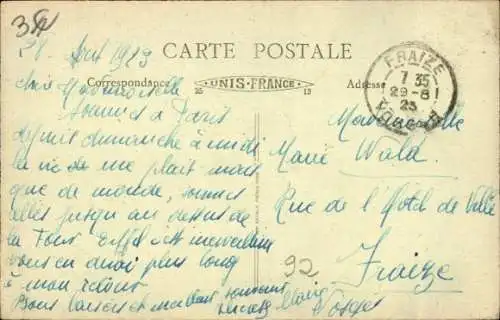 28 Aout 1923
CARTE POSTALE
Correspondance
UNIS-FRANCE
25
13
Adresse
FRAIZE
7 35
29-8
23
VOSGES
chère Mademoiselle
sommes à Paris
depuis dimanche à midi
la vie de me plait mais
que de monde, sommes
allés jusqu au dessus de
la Tour Eiffel c'est merveilleux
vous en dirai plus long
à mon retour
Bons baisers et meilleurs souvenirs
Mademoiselle
Marie Wald
Rue de l'Hotel de Ville
Fraize
Vosges
92